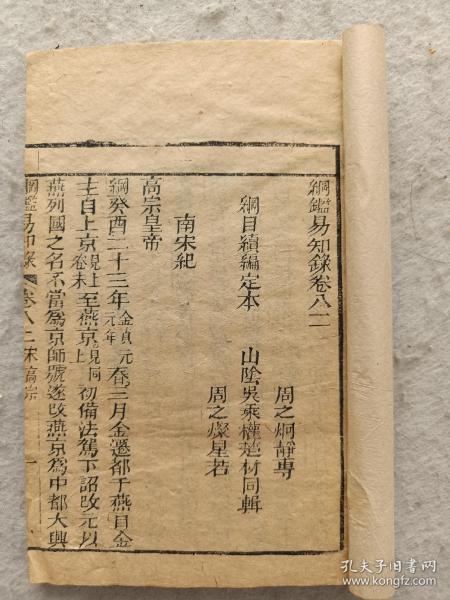 綱鑑易知錄卷八二
周之炯靜專
綱目續編定本 山陰吳乘權楚材同輯
周之燦星若
南宋紀
高宗皇帝
綱癸酉二十三年金貞元元年春三月金遷都于燕目金
主自上京見上卷末至燕京見同上初備法駕下詔改元以
燕列國之名不當為京師號遂改燕京為中都大興
綱鑑易知錄 卷八二 宋高宗 一
孔夫子旧书网
www.kongfz.com